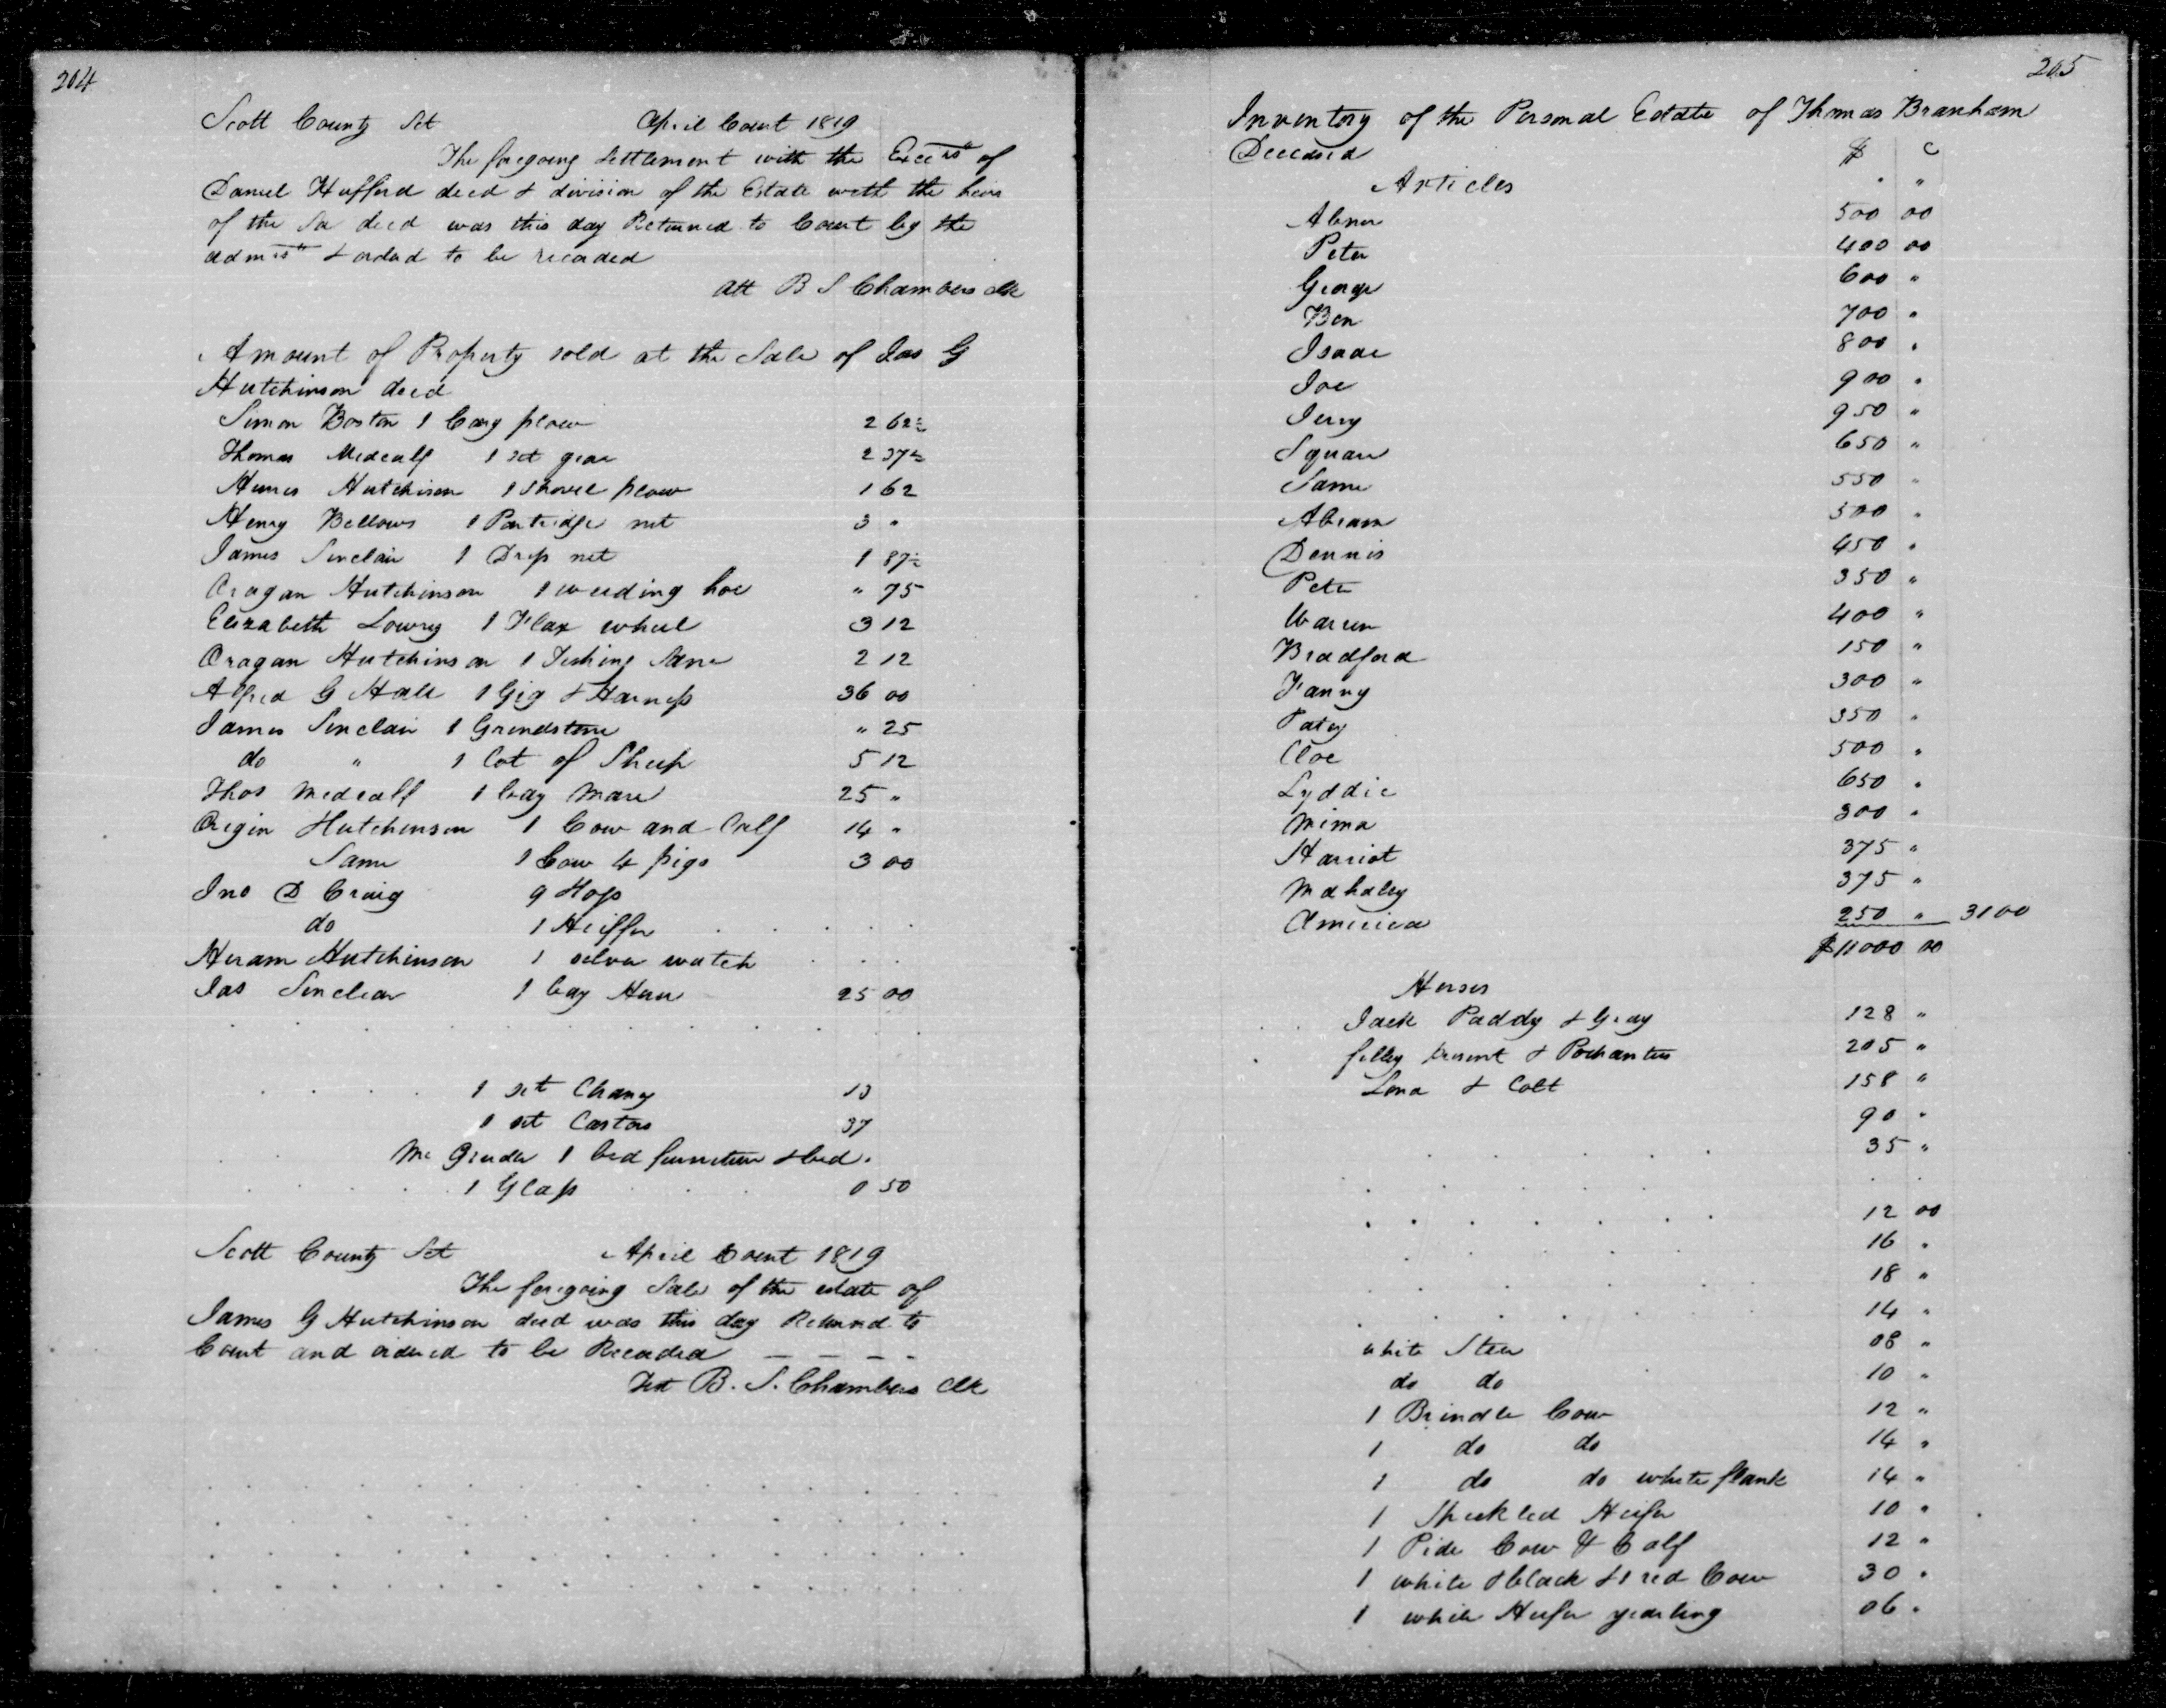 204
Scott County Sct April Court 1819
The foregoing Settlement with the Excrs of
Daniel Hufford decd & division of the Estate with the heirs
of the Sa decd was this day Returned to Court by the
admrs & ordered to be recorded
Att B S Chambers clk
Amount of Property sold at the Sale of Jas G
Hutchinson decd
Simon Boston 1 Cary plow 2 62½
Thomas Medcalf 1 set gear 2 37½
Hiram Hutchison 1 Shovel plow 1 62
Henry Bellows 1 Partridge net 3 "
James Sinclair 1 Drop net 1 87½
Oragan Hutchinson 1 weeding hoe " 75
Elizabeth Lowry 1 Flax wheel 3 12
Oragan Hutchinson 1 Fishing Sane 2 12
Alfred G Hall 1 Gig & Harness 36 00
James Sinclair 1 Grindstone " 25
do " 1 Lot of Sheep 5 12
Thos Medcalf 1 bay Mare 25 "
Origin Hutchinson 1 Cow and Calf 14 "
Same 1 Sow 4 pigs 3 00
Jno D Craig 9 Hogs
do 1 Heiffer
Hiram Hutchinson 1 silver watch
Jas Sinclear 1 bay Horse 25 00
1 set Chany 13
1 set Castors 37
Mc Gruder 1 bed furniture & bed.
1 Glass 0 50
Scott County Sct April Court 1819
The foregoing Sale of the estate of
James G Hutchinson decd was this day Returned to
Court and ordered to be Recorded
Test B. S. Chambers Clk
205
Inventory of the Personal Estate of Thomas Branham
Deceased $ c
Articles
Abner 500 00
Peter 400 00
George 600 "
Ben 700 "
Isaac 800 "
Joe 900 "
Jerry 950 "
Square 650 "
Same 550 "
Abram 500 "
Dennis 450 "
Pete 350 "
Warren 400 "
Bradford 150 "
Fanny 300 "
Patsy 350 "
Cloe 500 "
Lyddie 650 "
Mima 300 "
Harriot 375 "
Mahaley 375 "
America 250 " 3100
$11000 00
Horses
Jack Paddy & Gray 128 "
filley & Pocahantus 205 "
Lena & Colt 158 "
90 "
35 "
12 00
16 "
18 "
14 "
white Steer 08 "
do do 10 "
1 Brindle Cow 12 "
1 do do 14 "
1 do do white flank 14 "
1 Speckled Heifer 10 "
1 Pide Cow & Calf 12 "
1 white & black & 1 red Cow 30 "
1 white Heifer yearling 06 "